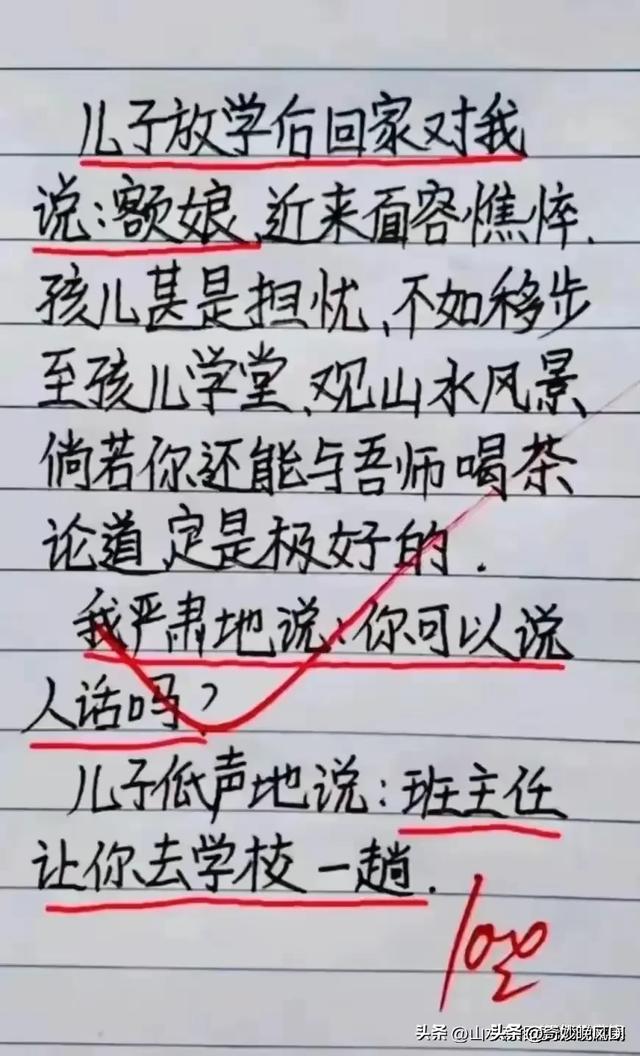 儿子放学后回家对我
说：额娘、近来面容憔悴、
孩儿甚是担忧、不如移步
至孩儿学堂、观山水风景、
倘若你还能与吾师喝茶
论道、定是极好的.
我严肃地说：你可以说
人话吗？
儿子低声地说：班主任
让你去学校一趟.
100
头条 @山
头条